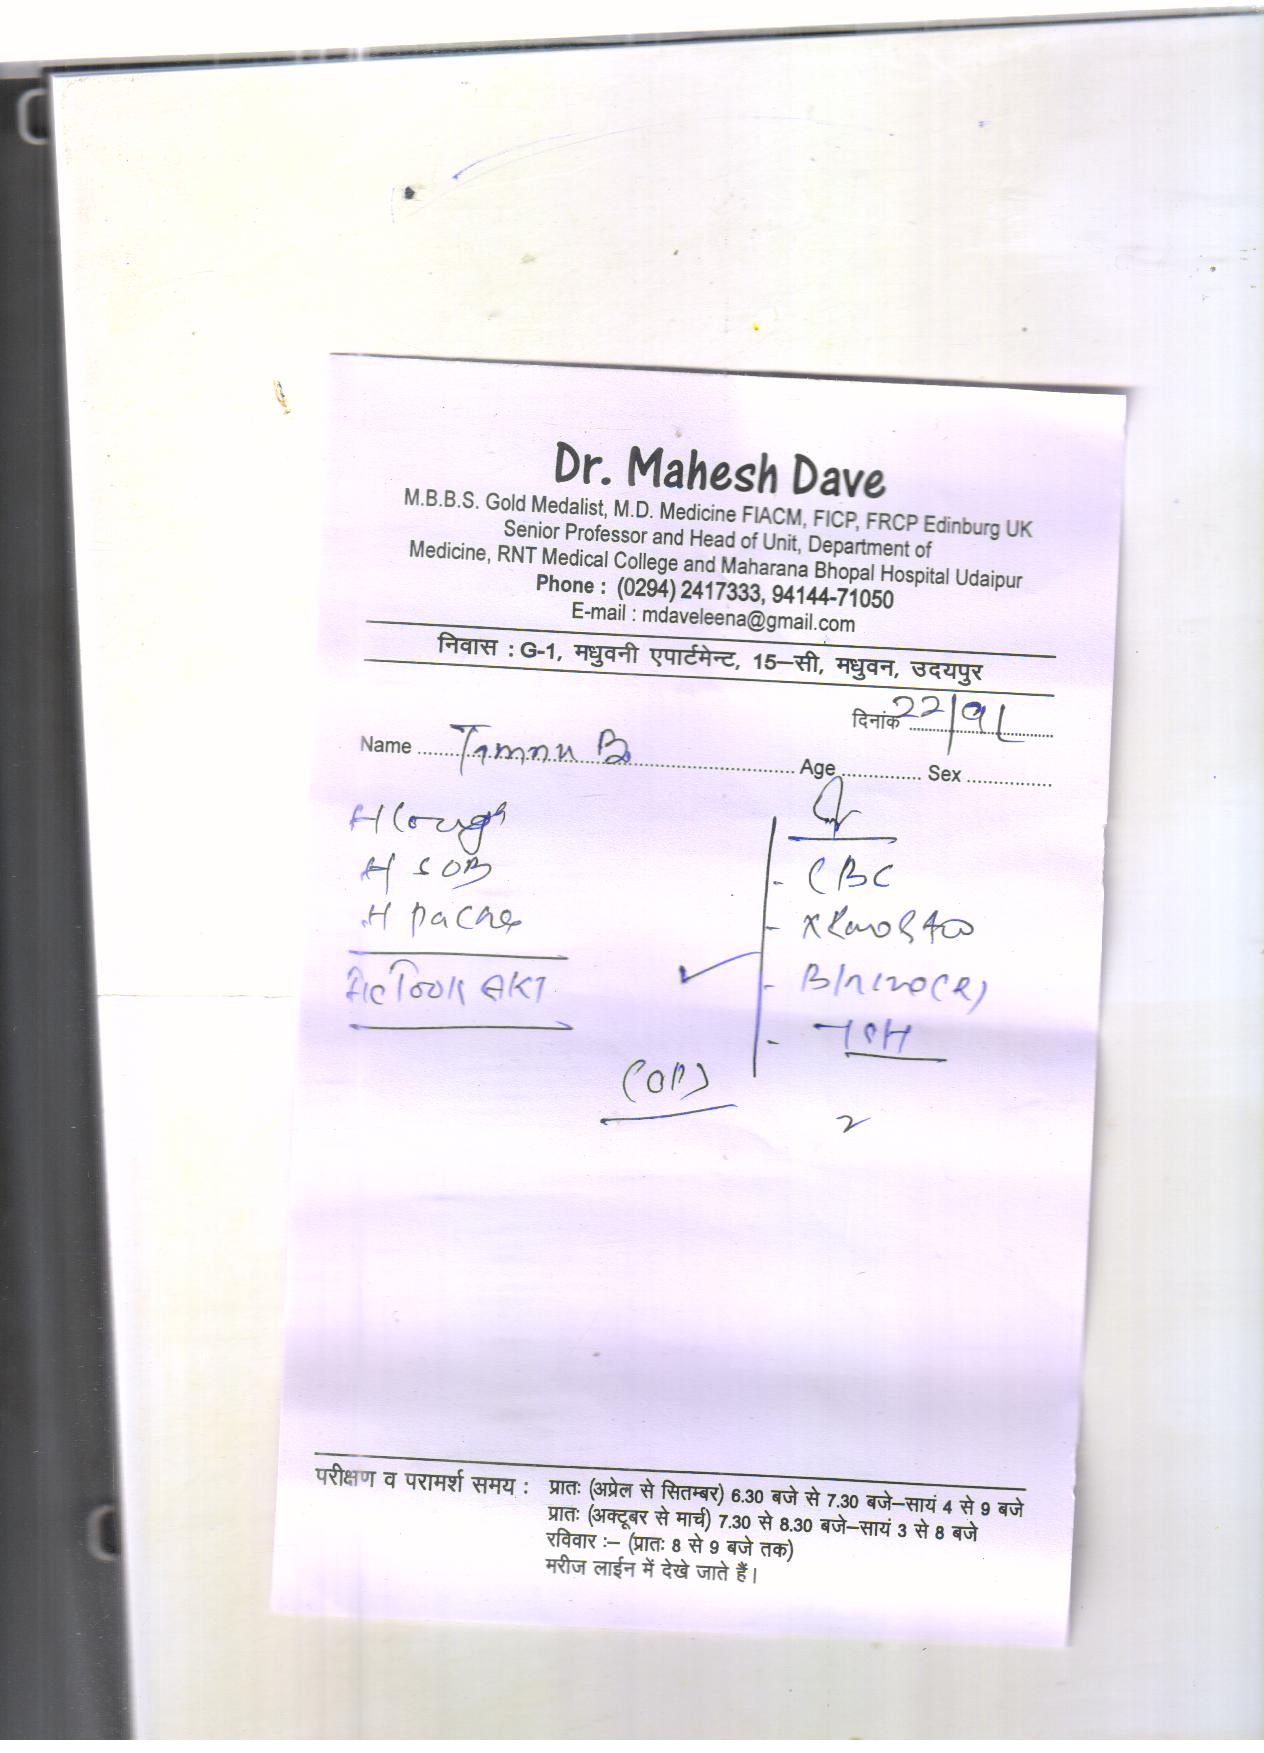 Dr. Mahesh Dave
M.B.B.S. Gold Medalist, M.D. Medicine FIACM, FICP, FRCP Edinburg UK
Senior Professor and Head of Unit, Department of
Medicine, RNT Medical College and Maharana Bhopal Hospital Udaipur
Phone : (0294) 2417333, 94144-71050
E-mail : mdaveleena@gmail.com
निवास : G-1, मधुवनी एपार्टमेन्ट, 15–सी, मधुवन, उदयपुर
दिनांक 22/9/
Name Tammu B. Age Sex
H Cough
H SOB
H
H/o Took AKT
CBC
TSH
परीक्षण व परामर्श समय : प्रातः (अप्रेल से सितम्बर) 6.30 बजे से 7.30 बजे–सायं 4 से 9 बजे
प्रातः (अक्टूबर से मार्च) 7.30 से 8.30 बजे–सायं 3 से 8 बजे
रविवार :– (प्रातः 8 से 9 बजे तक)
मरीज लाईन में देखे जाते हैं।